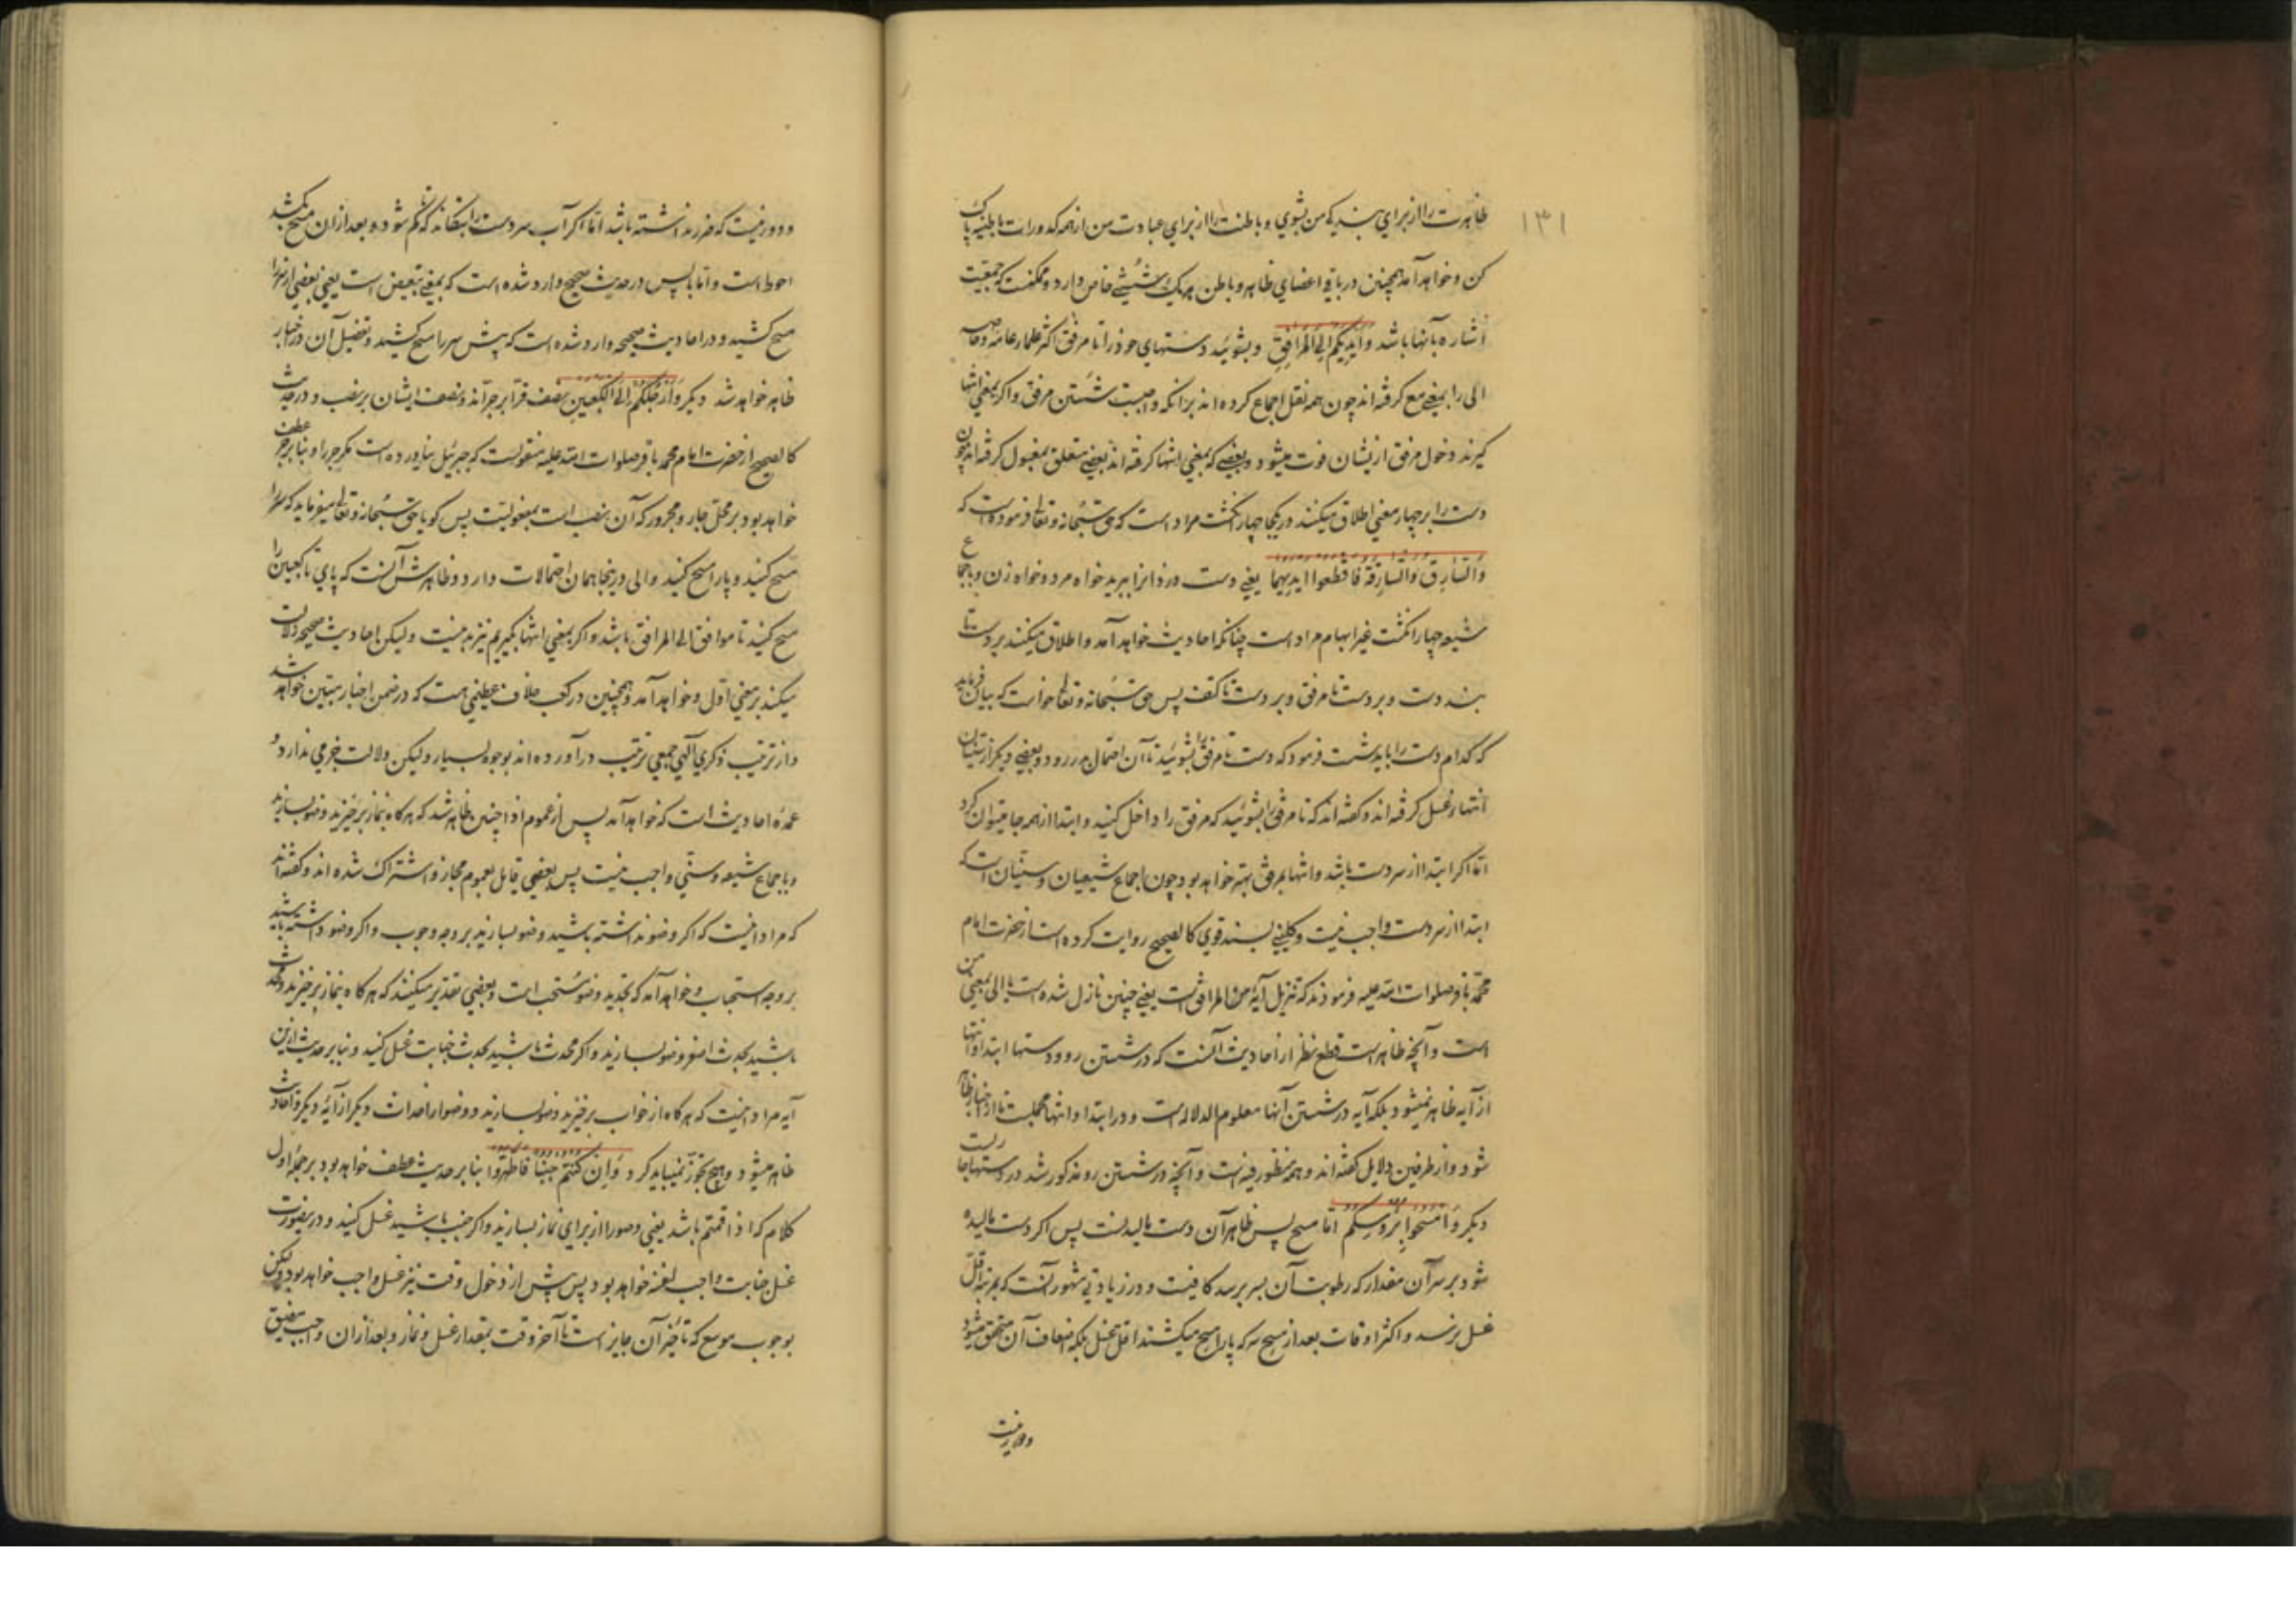 ۱۳۱
ظاهرت را از برای بندگی من بشوی و باطنت را از برای عبادت من از همه کدورات باطنیه پاک
کن و خواهد آمد همچنین در باقی اعضای ظاهر و باطن هر یک شستنی خاص دارد و ممکنست که جمعیت
اشاره بآنها باشد وَاَیدِیَکُم اِلَی المَرافِقِ و بشوئید دستهای خود را تا مرفق اکثر علماء عامه و خاصه
الی را بمعنی مع گرفته اند چون همه نقل اجماع کرده اند بر آنکه واجبست شستن مرفق و اگر بمعنی انتها
گیرند دخول مرفق ازیشان فوت میشود و بعضی که بمعنی انتها گرفته اند بعضی متعلق بمغسول گرفته اند چون
دست را بر چهار معنی اطلاق میکنند در یکجا چهار انگشت مراد است که حق سبحانه و تعالی فرموده است که
وَالسّارِق وَالسّارِقَة فَاقطَعوا ایدِیَهُما یعنی دست دزد انرا ببرید خواه مرد و خواه زن و باجماع
شیعه چهار انگشت غیر ابهام مراد است چنانکه احادیث خواهد آمد و اطلاق میکنند بر دست تا
بند دست و بر دست تا مرفق و بر دست تا کتف پس حق سبحانه و تعالی خواست که بیان فرماید
که کدام دست را باید شست فرمود که دست تا مرفق را بشوئید تا آن احتمال در رود و بعضی دیگر از سنیان
انتهاء غسل گرفته اند و گفته اند که تا مرفق را بشوئید که مرفق را داخل کنید و ابتدا از هر جا میتوان کرد
اما اگر ابتدا از سر دست باشد و انتها بمرفق بهتر خواهد بود چون اجماع شیعیان و سنیان است که
ابتدا از سر دست واجب نیست و کلینی بسند قوی کالصحیح روایت کرده است از حضرت امام
محمد باقر صلوات الله علیه فرمودند که تنزیل آیه من المرافق است یعنی چنین نازل شده است یا الی بمعنی من
است و آنچه ظاهر است قطع نظر از احادیث آنست که در شستن رو و دستها ابتدا و انتها
از آیه ظاهر نمیشود بلکه آیه در شستن آنها معلوم الدلاله است و در ابتدا و انتها مجملست تا از اخبار ظاهر
شود و از طرفین دلایل گفته اند و همه منظور فیه است و آنچه در شستن رو مذکور شد در دستها جاریست
دیگر وَامسَحوا بِرُؤسِکُم اما مسح پس ظاهر آن دست مالیدنست پس اگر دست مالیده
شود بر سر آن مقدار که رطوبت آن بسر برسد کافیست و در زیادتی مشهور آنست که بمرتبه اقل
غسل نرسد و اکثر اوقات بعد از مسح سر که پا را مسح میکشند اقل غسل بلکه اضعاف آن متحقق میشود
و دور نیست
و دور نیست که ضرر نداشته باشد اما اگر آب سر دست را بتکاند تا که کم شود و بعد از آن مسح بکشد
احوط است و اما با پس در حدیث صحیح وارد شده است که بمعنی تبعیض است یعنی بعضی از سر را
مسح کشید و در احادیث صحیحه وارد شده است که پیش سر را مسح کشید و تفصیل آن در اخبار
ظاهر خواهد شد دیگر وَاَرجُلَکُم اِلَی الکَعبَینِ نصف قرّاء بر جرّ اند و نصف ایشان بر نصب و در حدیث
کالصحیح از حضرت امام محمد باقر صلوات الله علیه منقولست که جبرئیل نیاورده است مگر جر را و بنا بر جر عطف
خواهد بود بر محل جار و مجرور که آن نصب است بمفعولیت پس گویا حق سبحانه و تعالی میفرماید که سر را
مسح کنید و پا را مسح کنید و الی در اینجا همان احتمالات دارد و ظاهرش آنست که پای تا کعبین را
مسح کنید تا موافق الی المرافق باشد و اگر بمعنی انتها بگیریم نیز بد نیست ولیکن احادیث صحیحه دلالت
میکند بر معنی اول و خواهد آمد و همچنین در کعب خلاف عظیمی هست که در ضمن اخبار مبین خواهد شد
و از ترتیب ذکری آلهی جمعی ترتیب درآورده اند بوجوه بسیار ولیکن دلالت جزمی ندارد و
عمده احادیث است که خواهد آمد پس از عموم اذا چنین ظاهر شد که هر گاه بنماز برخیزید وضو بسازید
و باجماع شیعه و سنی واجب نیست پس بعضی قایل بعموم مجاز و اشتراک شده اند و گفته اند
که مراد اینست که اگر وضو نداشته باشید وضو بسازید بر وجه وجوب و اگر وضو داشته باشید
بر وجه استحباب و خواهد آمد که تجدید وضو مستحب است و بعضی تقدیر میکنند که هر گاه بنماز برخیزید و محدث
باشید بحدث اصغر وضو بسازید و اگر محدث باشید بحدث جنابت غسل کنید و بنا بر حدیث ازین
آیه مراد اینست که هر گاه از خواب برخیزید وضو بسازید و وضو از احداث دیگر از آیه دیگر و احادیث
ظاهر میشود و هیچ تجوّز نمیباید کرد وَاِن کُنتُم جُنُبًا فَاطَّهَّروا بنا بر حدیث عطف خواهد بود بر جمله اول
کلام که اذا قمتم باشد یعنی وضو را از برای نماز بسازید و اگر جنب باشید غسل کنید و درین صورت
غسل جنابت واجب لنفسه خواهد بود پس پیش از دخول وقت نیز غسل واجب خواهد بود ولیکن
بوجوب موسع که تأخیر آن جایز است تا آخر وقت بمقدار غسل و نماز و بعد از آن واجب مضیق